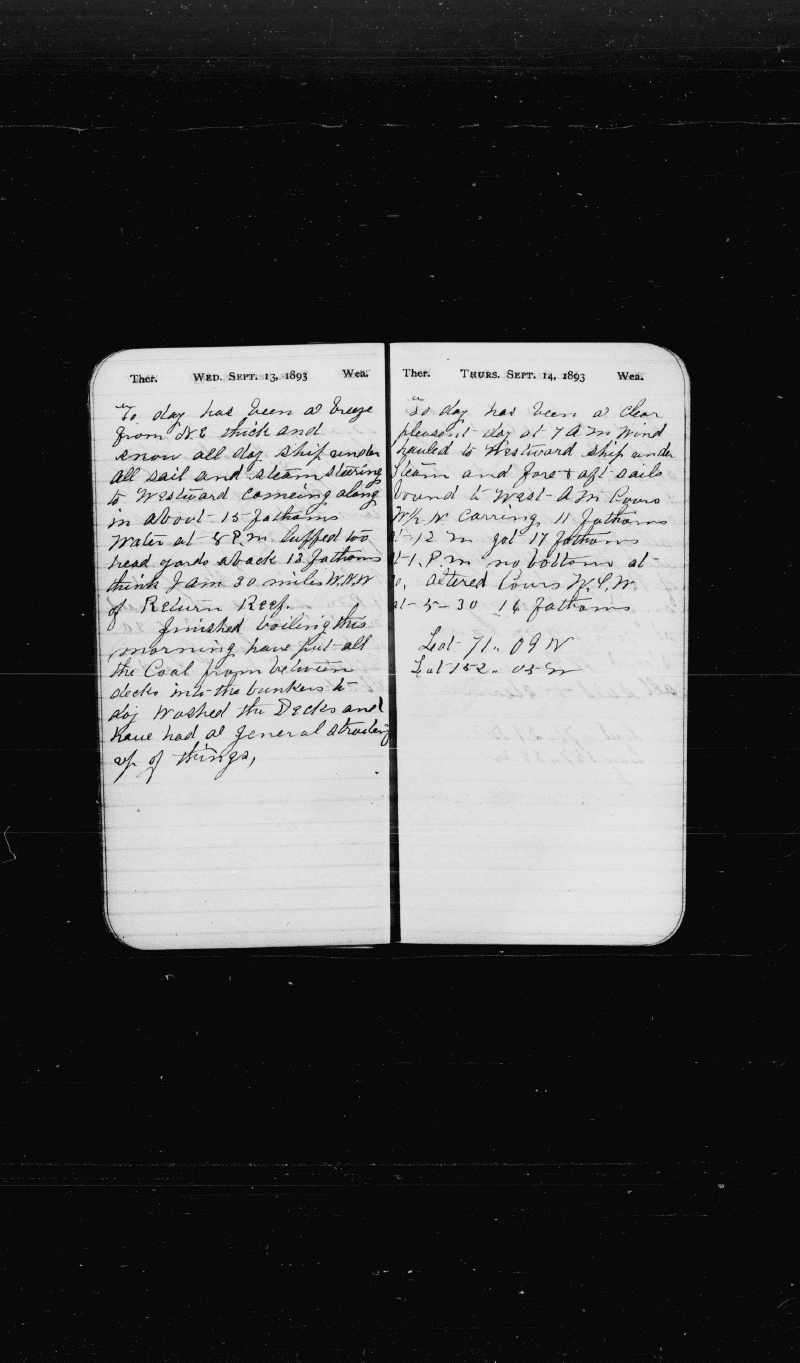 Ther. WED. SEPT. 13, 1893 Wea.
To day has been a breeze
from N.E thick and
snow all day ship under
all sail and steam steering
to Westward comeing along
in about 15 fathoms
Water at 8 P.m luffed too
head yards aback 13 fathoms
think I am 30 miles W.N.W
of Return Reef.
finished boiling this
morning have put all
the Coal from between
decks into the bunkers to
day Washed the Decks and
have had a general
up of things,
Ther. THURS. SEPT. 14, 1893 Wea.
To day has been a Clear
pleasent day at 7 A m Wind
hauled to Westward ship under
steam and fore & aft sails
bound to West A m Cours
Carring 11 fathoms
at 12 m got 17 fathoms
at 1. P m no bottom at
altered Cours
at 5-30 16 fathoms
Lat 71.. 09 N
152..